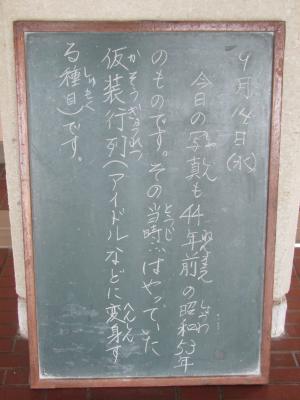 9月14日(水)
今日の写真も44年前の昭和53年
ねんまえ しょうわ
のものです。その当時はやっていた
とうじ
仮装行列(アイドルなどに変身す
かそうぎょうれつ へんしん
る種目)です。
しゅもく